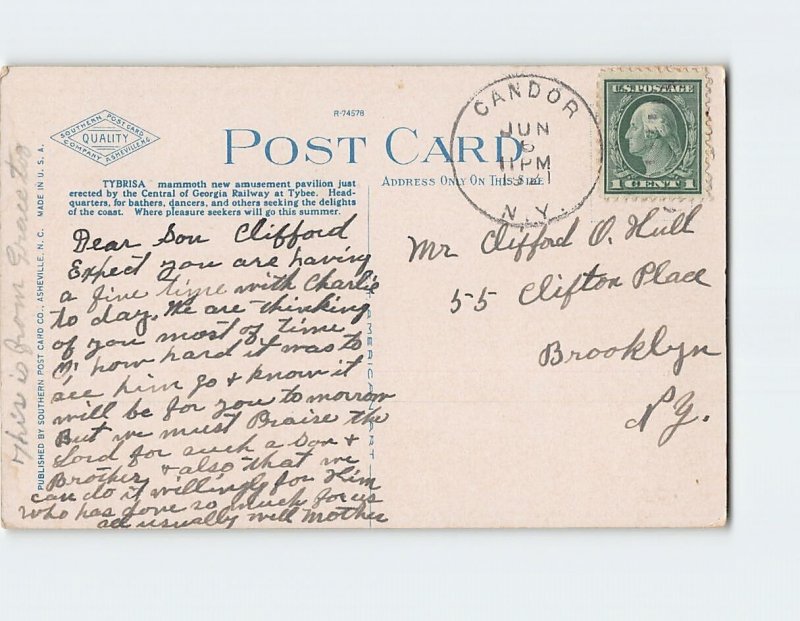 R-74578
SOUTHERN POST CARD
QUALITY
COMPANY ASHEVILLE NC
POST CARD
ADDRESS ONLY ON THIS SIDE
TYBRISA mammoth new amusement pavilion just
erected by the Central of Georgia Railway at Tybee. Head-
quarters, for bathers, dancers, and others seeking the delights
of the coast. Where pleasure seekers will go this summer.
PUBLISHED BY SOUTHERN POST CARD CO., ASHEVILLE, N. C. MADE IN U. S. A.
This is from Grace to
Dear Son Clifford
Expect you are having
a fine time with Charlie
to day. We are thinking
of you most of time
O, how hard it was to
see him go & know it
will be for you to morrow
But we must Praise the
Lord for such a Son &
Brother, & also that we
can do it willingly for Him
who has done so much for us
all usually well Mother
CANDOR
JUN
6
11 PM
N.Y.
U.S. POSTAGE
1 CENT 1
Mr Clifford O. Hull
55 Clifton Place
Brooklyn
N.Y.